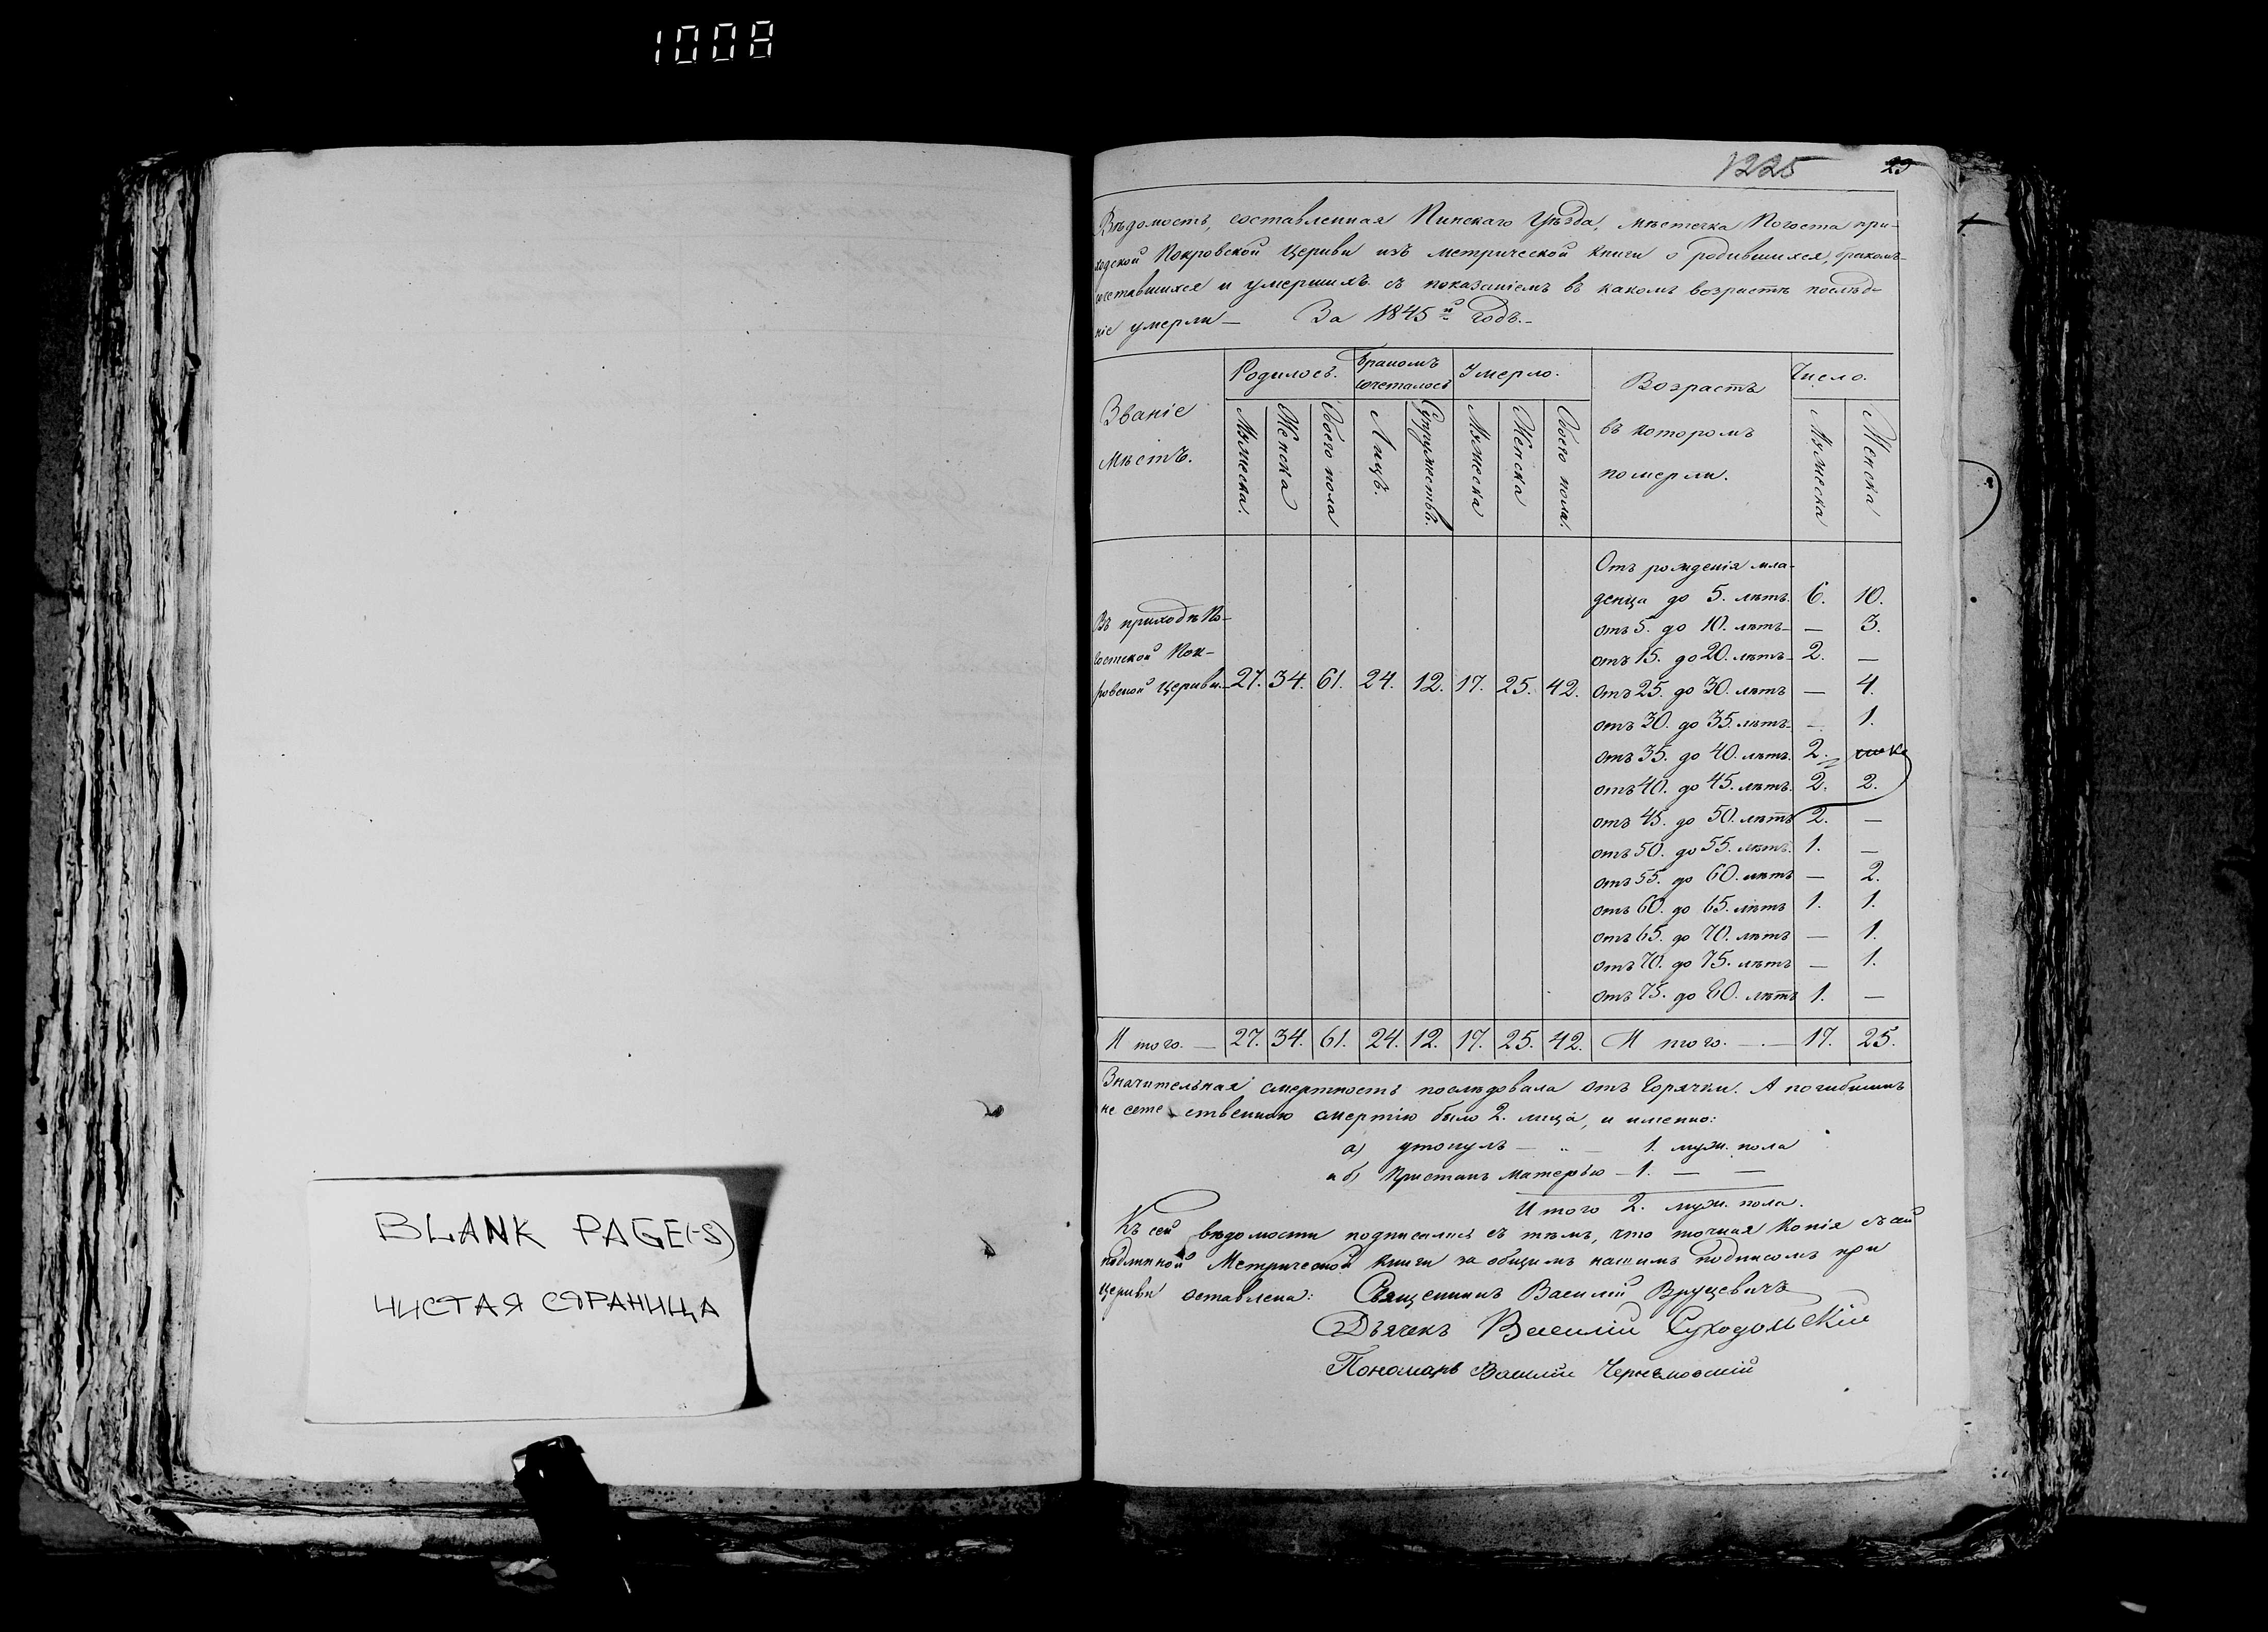 1008
BLANK PAGE(-S)
ЧИСТАЯ СТРАНИЦА
1225 23
Вѣдомость, составленная Пинскаго Уѣзда, мѣстечка Погоста при-
ходской Покровской Церкви изъ метрической книги о родившихся, бракомъ-
сочетавшихся и умершихъ съ показаніемъ въ какомъ возрастѣ послѣд-
ніе умерли — За 1845й годъ.—
Званіе мѣстъ. Родилось. Бракомъ сочеталось Умерло. Возрастъ въ которомъ померли. Число.
Мужеска. Женска Обоего пола Лицъ. Супружествъ. Мужеска Женска Обоего пола. Мужеска Женска
Отъ рожденія мла-
денца до 5. лѣтъ. 6. 10.
Въ приходѣ По-
отъ 5. до 10. лѣтъ — — 3.
гостской Пок-
отъ 15. до 20. лѣтъ — 2. —
ровской Церкви. — 27. 34. 61. 24. 12. 17. 25. 42. отъ 25. до 30. лѣтъ — 4.
отъ 30. до 35. лѣтъ — — 1.
отъ 35. до 40. лѣтъ. 2.
отъ 40. до 45. лѣтъ. 2. 2.
отъ 45. до 50. лѣтъ 2. —
отъ 50. до 55. лѣтъ. 1. —
отъ 55. до 60. лѣтъ — 2.
отъ 60. до 65. лѣтъ 1. 1.
отъ 65. до 70. лѣтъ — 1.
отъ 70. до 75. лѣтъ — 1.
отъ 75. до 80. лѣтъ 1. —
Итого. — 27. 34. 61. 24. 12. 17. 25. 42. Итого. — 17. 25.
Значительная смертность послѣдовала отъ Горячки. А погибшихъ
не есте ственною смертію было 2. лица, и именно:
а) утонулъ — „ — 1. муж. пола
и б) Приспанъ Матерью — 1. — —
Итого 2. муж. пола.
Къ сей вѣдомости подписались съ тѣмъ, что точная Копія съ сей
подлинной Метрической книги за общимъ нашимъ подписомъ при
Церкви оставлена: Священникъ Василій Вруцевичъ
Дьячекъ Василій Суходольскій
Пономарь Василій